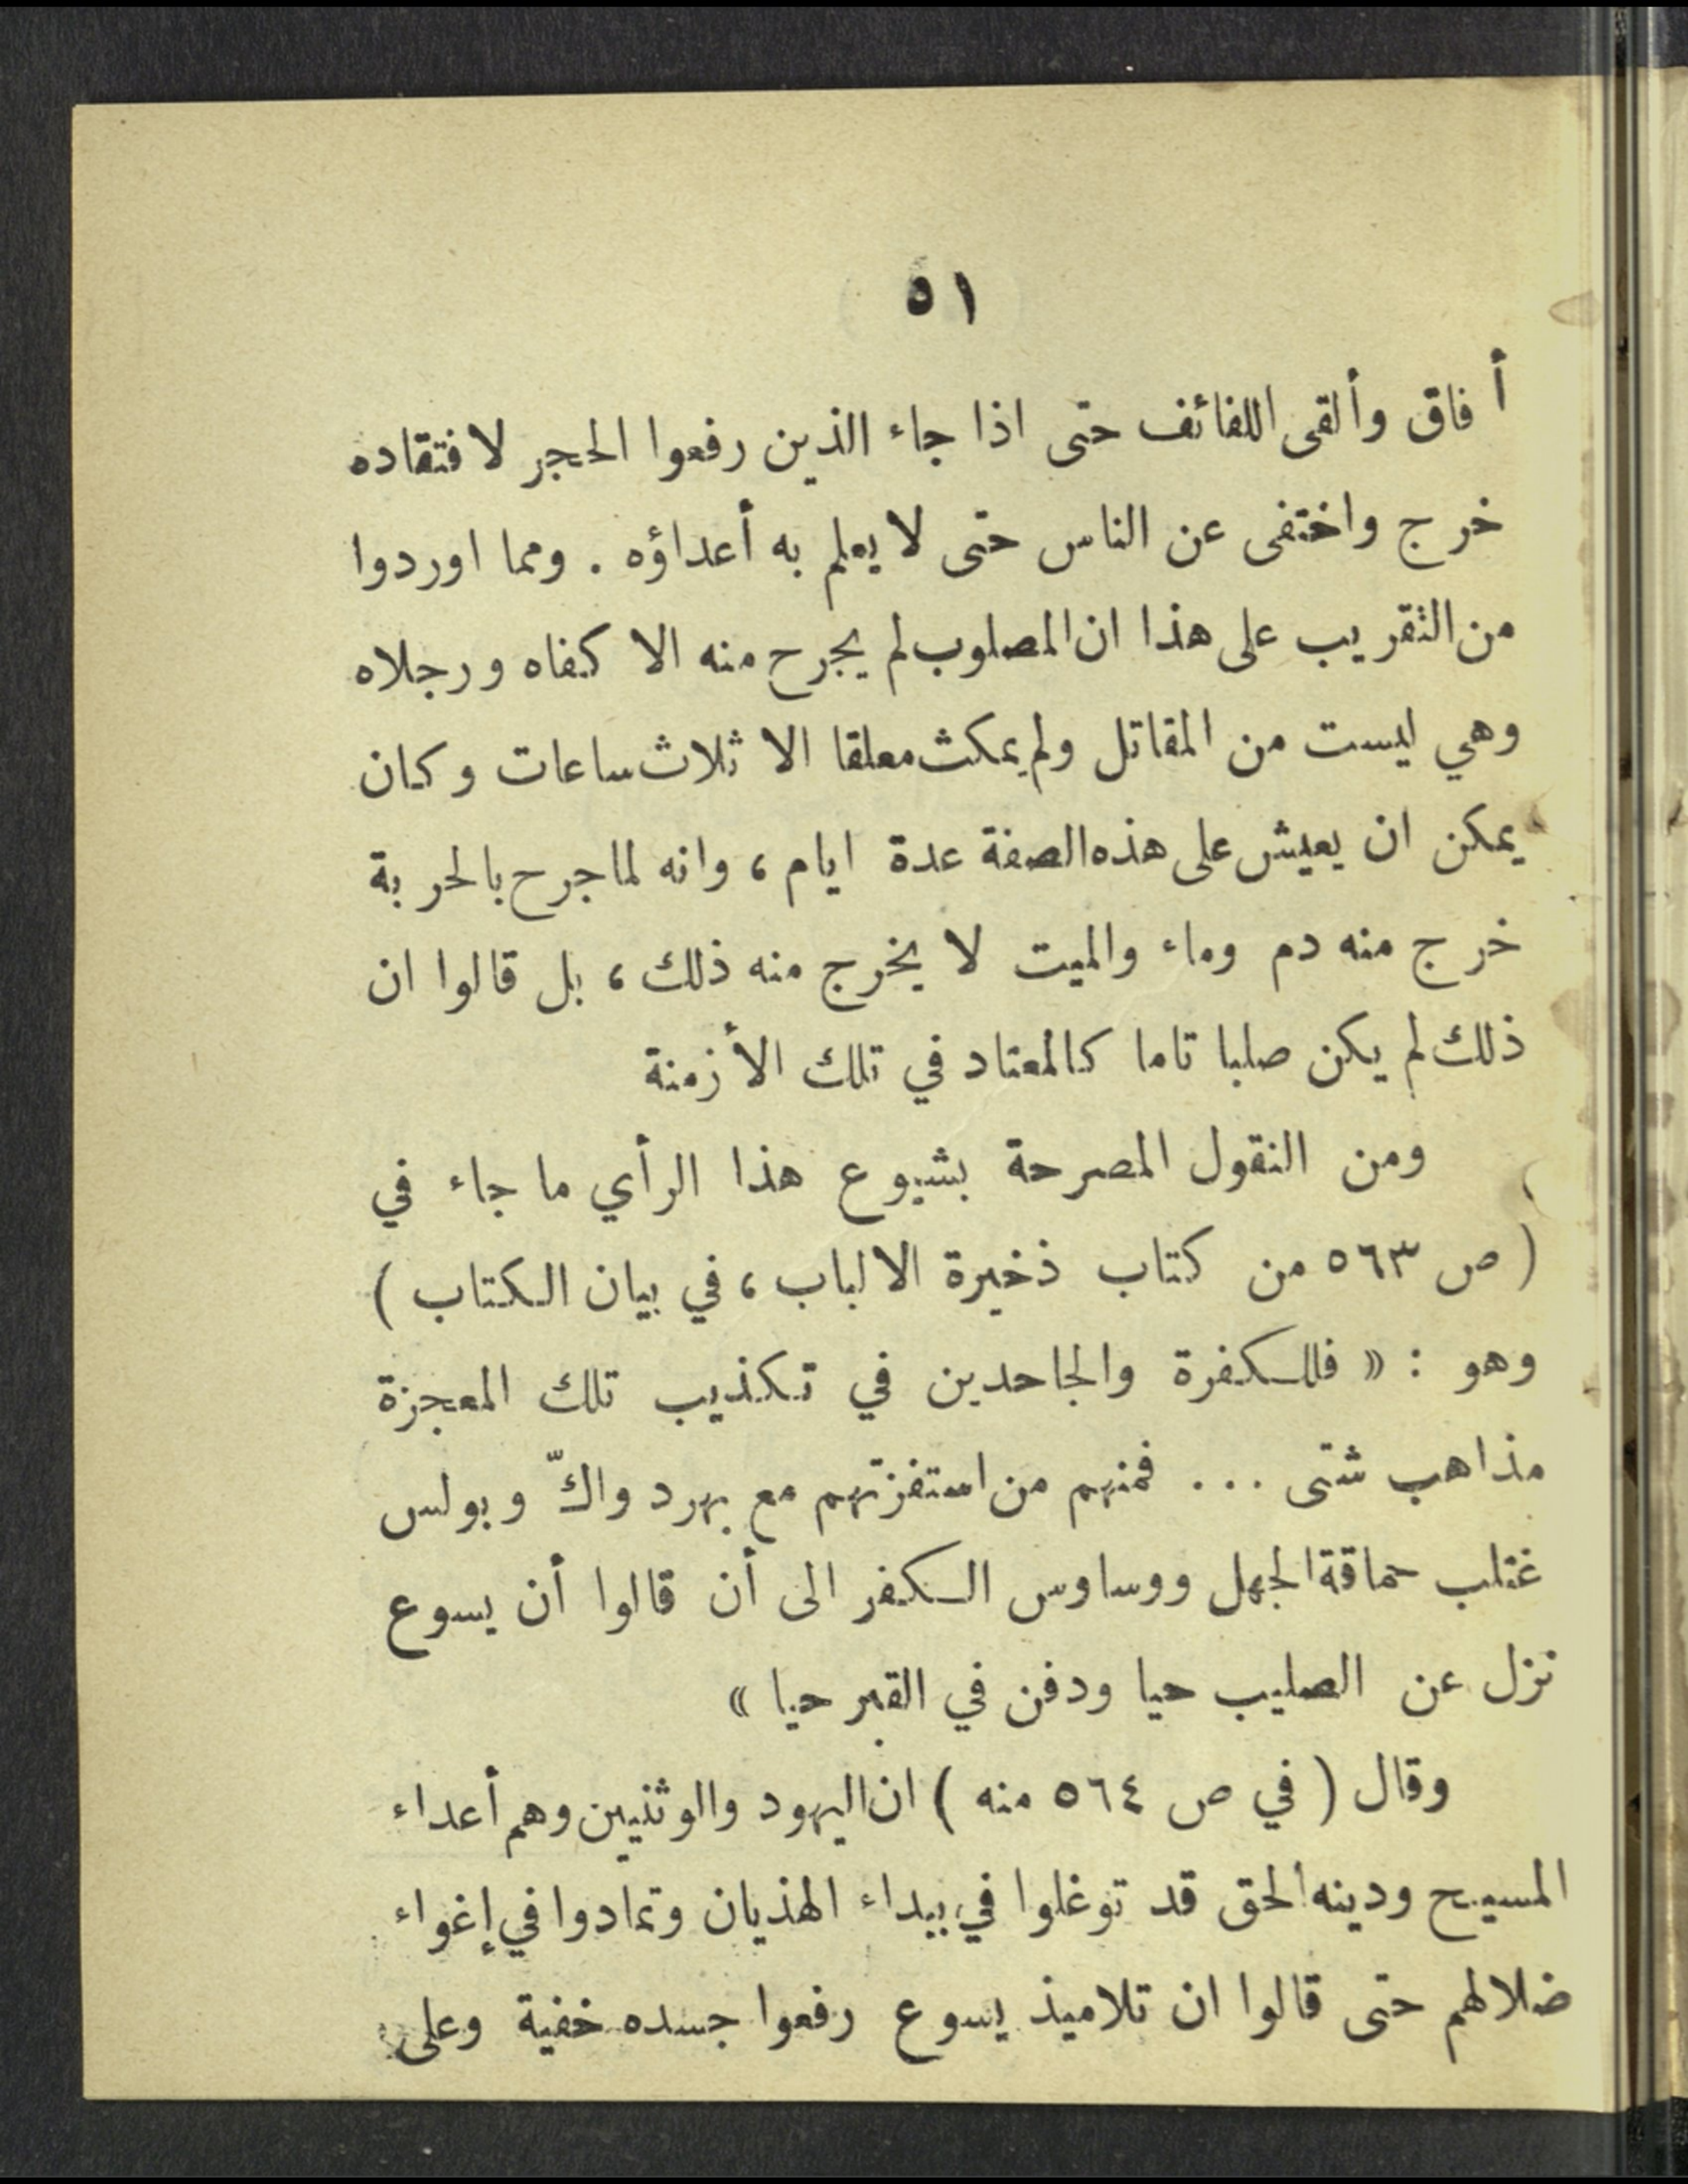 ٥١
أفاق وألقى اللفائف حتى اذا جاء الذين رفعوا الحجر لافتقاده
خرج واختفى عن الناس حتى لا يعلم به أعداؤه . ومما اوردوا
من التقريب على هذا ان المصلوب لم يجرح منه الا كفاه ورجلاه
وهي ليست من المقاتل ولم يمكث معلقا الا ثلاث ساعات وكان
يمكن ان يعيش على هذه الصفة عدة ايام ، وانه لما جرح بالحربة
خرج منه دم وماء والميت لا يخرج منه ذلك ، بل قالوا ان
ذلك لم يكن صلبا تاما كالمعتاد في تلك الأزمنة
ومن النقول المصرحة بشيوع هذا الرأي ما جاء في
( ص ٥٦٣ من كتاب ذخيرة الالباب ، في بيان الكتاب )
وهو : « فللكفرة والجاحدين في تكذيب تلك المعجزة
مذاهب شتى ... فمنهم من استفزتهم مع بهرد واكّ وبولس
غتلب حماقة الجهل ووساوس الكفر الى أن قالوا أن يسوع
نزل عن الصليب حيا ودفن في القبر حيا »
وقال ( في ص ٥٦٤ منه ) ان اليهود والوثنيين وهم أعداء
المسيح ودينه الحق قد توغلوا في بيداء الهذيان وتمادوا في إغواء
ضلالهم حتى قالوا ان تلاميذ يسوع رفعوا جسده خفية وعلى